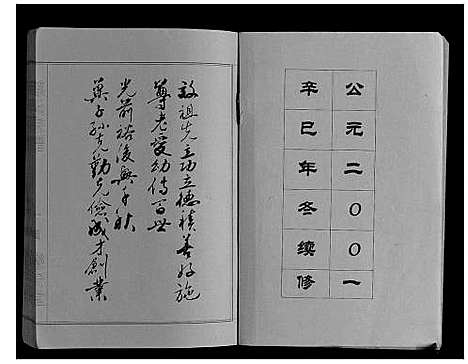 公元二〇〇一
辛巳年冬续修
祖先立功立德積善好施
尊老愛幼傳百世
光前裕後興千秋
子孫克勤克儉成才創業